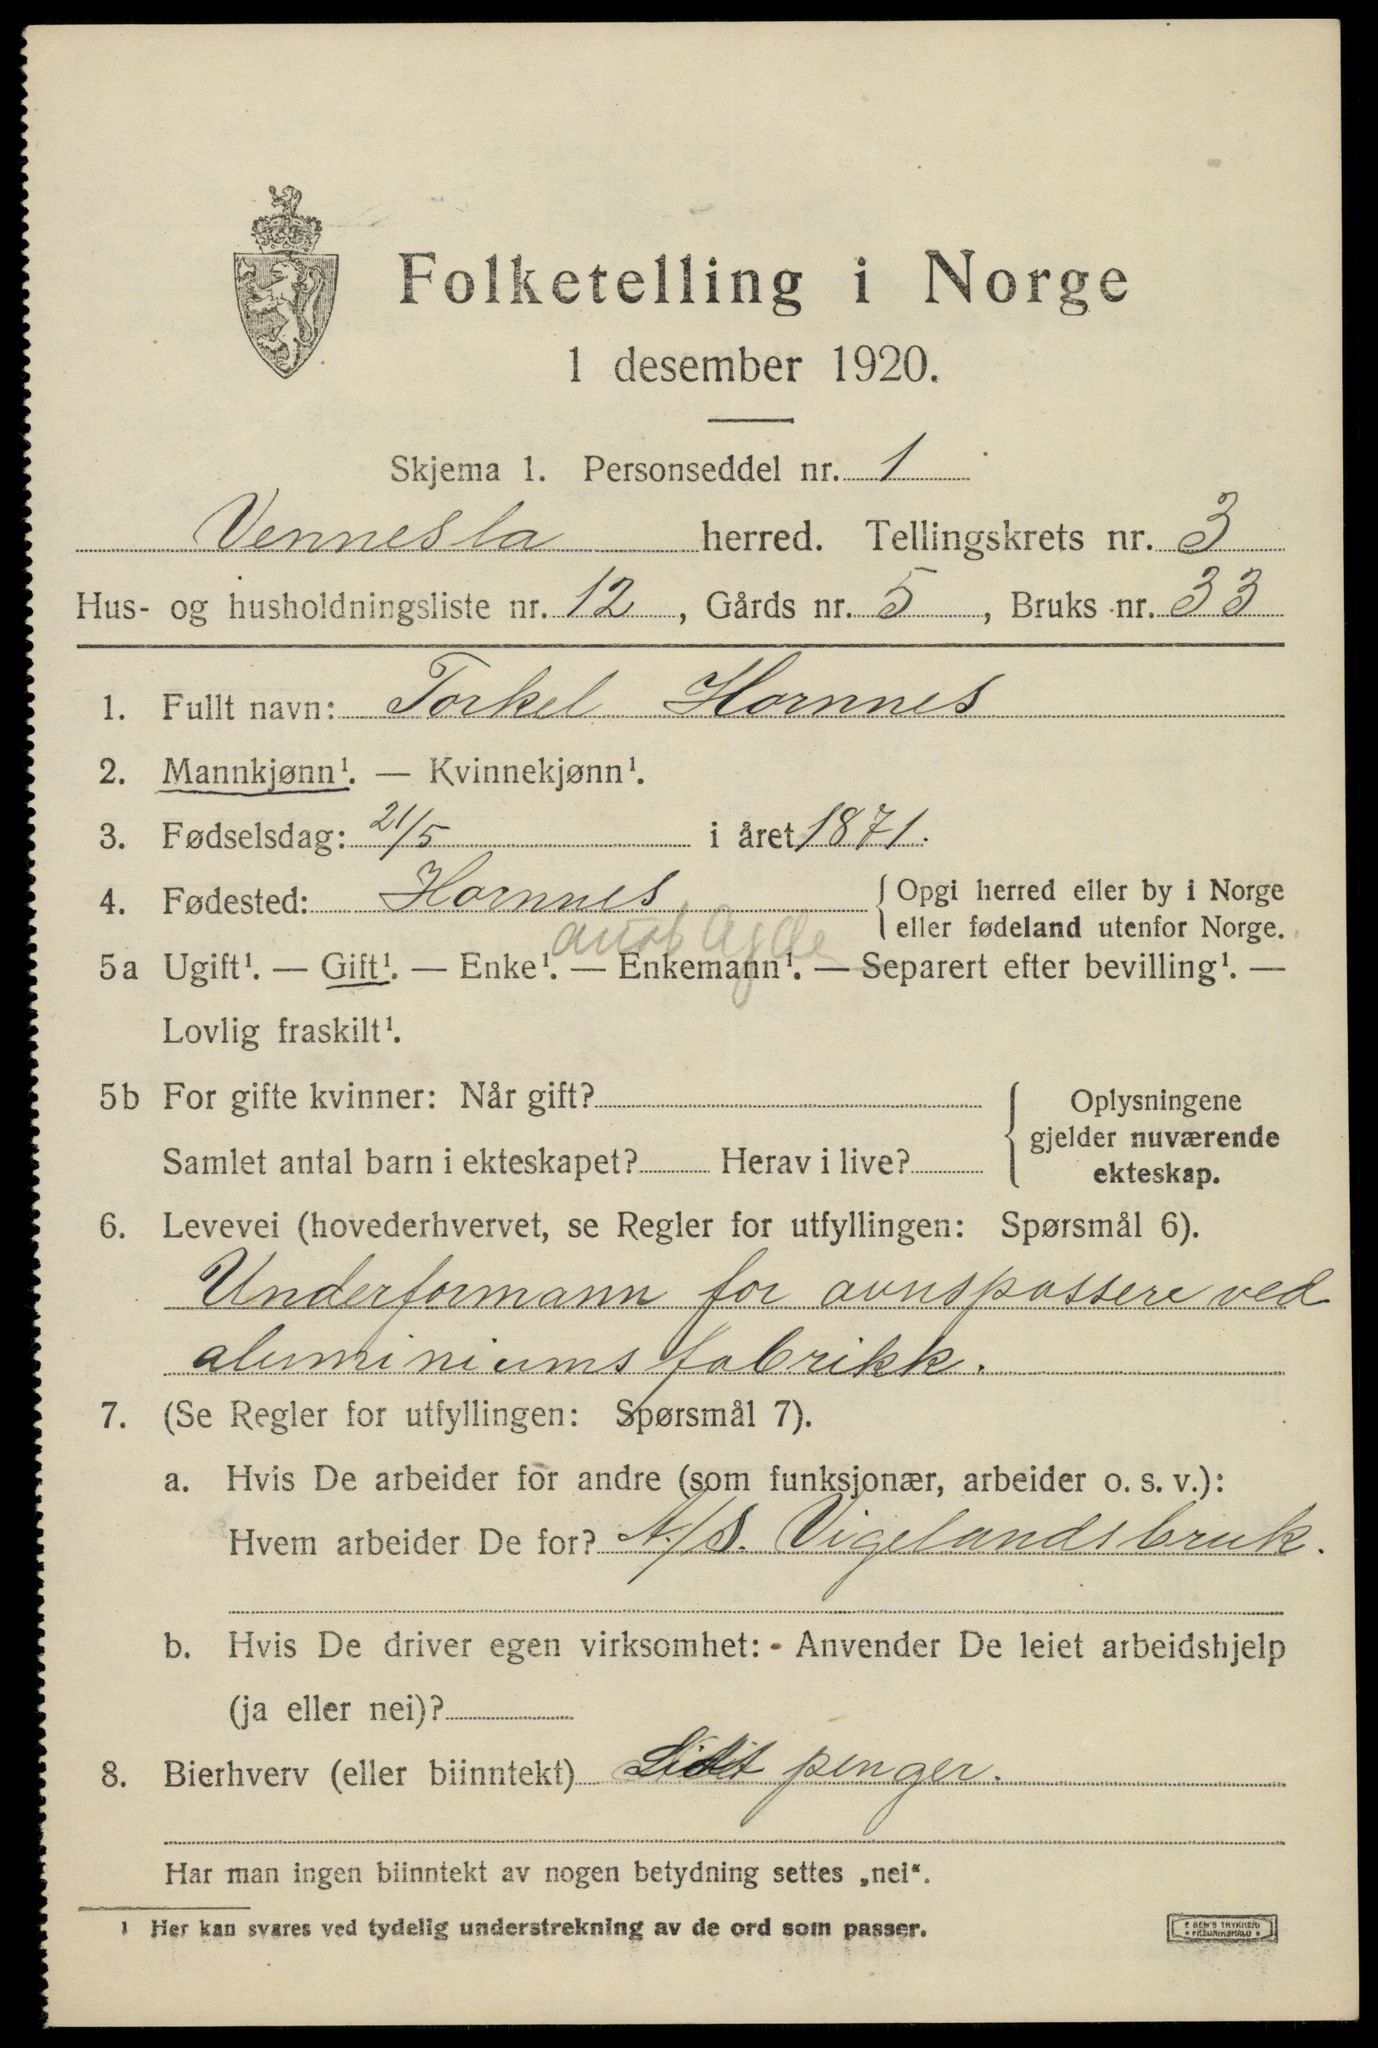 Folketelling i Norge
1 desember 1920.
Skjema 1. Personseddel nr. 1
Vennesla herred. Tellingskrets nr. 3
Hus- og husholdningsliste nr. 12, Gårds nr. 5, Bruks nr. 33
1. Fullt navn: Torkel Hornnes
2. Mannkjønn¹. — Kvinnekjønn¹.
3. Fødselsdag: 21/5 i året 1871.
4. Fødested: Hornnes { Opgi herred eller by i Norge
eller fødeland utenfor Norge.
aust Agde
5a Ugift¹. — Gift¹. — Enke¹. — Enkemann¹. — Separert efter bevilling¹. —
Lovlig fraskilt¹.
5b For gifte kvinner: Når gift? { Oplysningene
gjelder nuværende
Samlet antal barn i ekteskapet? Herav i live?
ekteskap.
6. Levevei (hovederhvervet, se Regler for utfyllingen: Spørsmål 6).
Underformann for ovnspassere ved
aluminiumsfabrikk.
7. (Se Regler for utfyllingen: Spørsmål 7).
a. Hvis De arbeider for andre (som funksjonær, arbeider o. s. v.):
Hvem arbeider De for? A/S. Vigelandsbruk.
b. Hvis De driver egen virksomhet: - Anvender De leiet arbeidshjelp
(ja eller nei)?
8. Bierhverv (eller biinntekt) penger.
Har man ingen biinntekt av nogen betydning settes „nei“.
1 Her kan svares ved tydelig understrekning av de ord som passer.